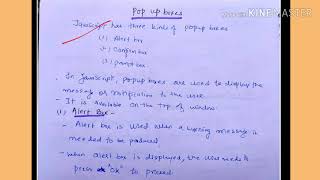 Made with
KINEMASTER
Pop up boxes
Javascript has three kinds of popup boxes
(1) Alert box
(2) Confirm box
(3) prompt box
- In Javascript, popup boxes are used to display the
message or notification to the user
- It is available on the top of window.
(1) Alert Box -
- Alert box is used when a warning message is
needed to be produced
- When alert box is displayed, the user needs to
press "OK" to proceed